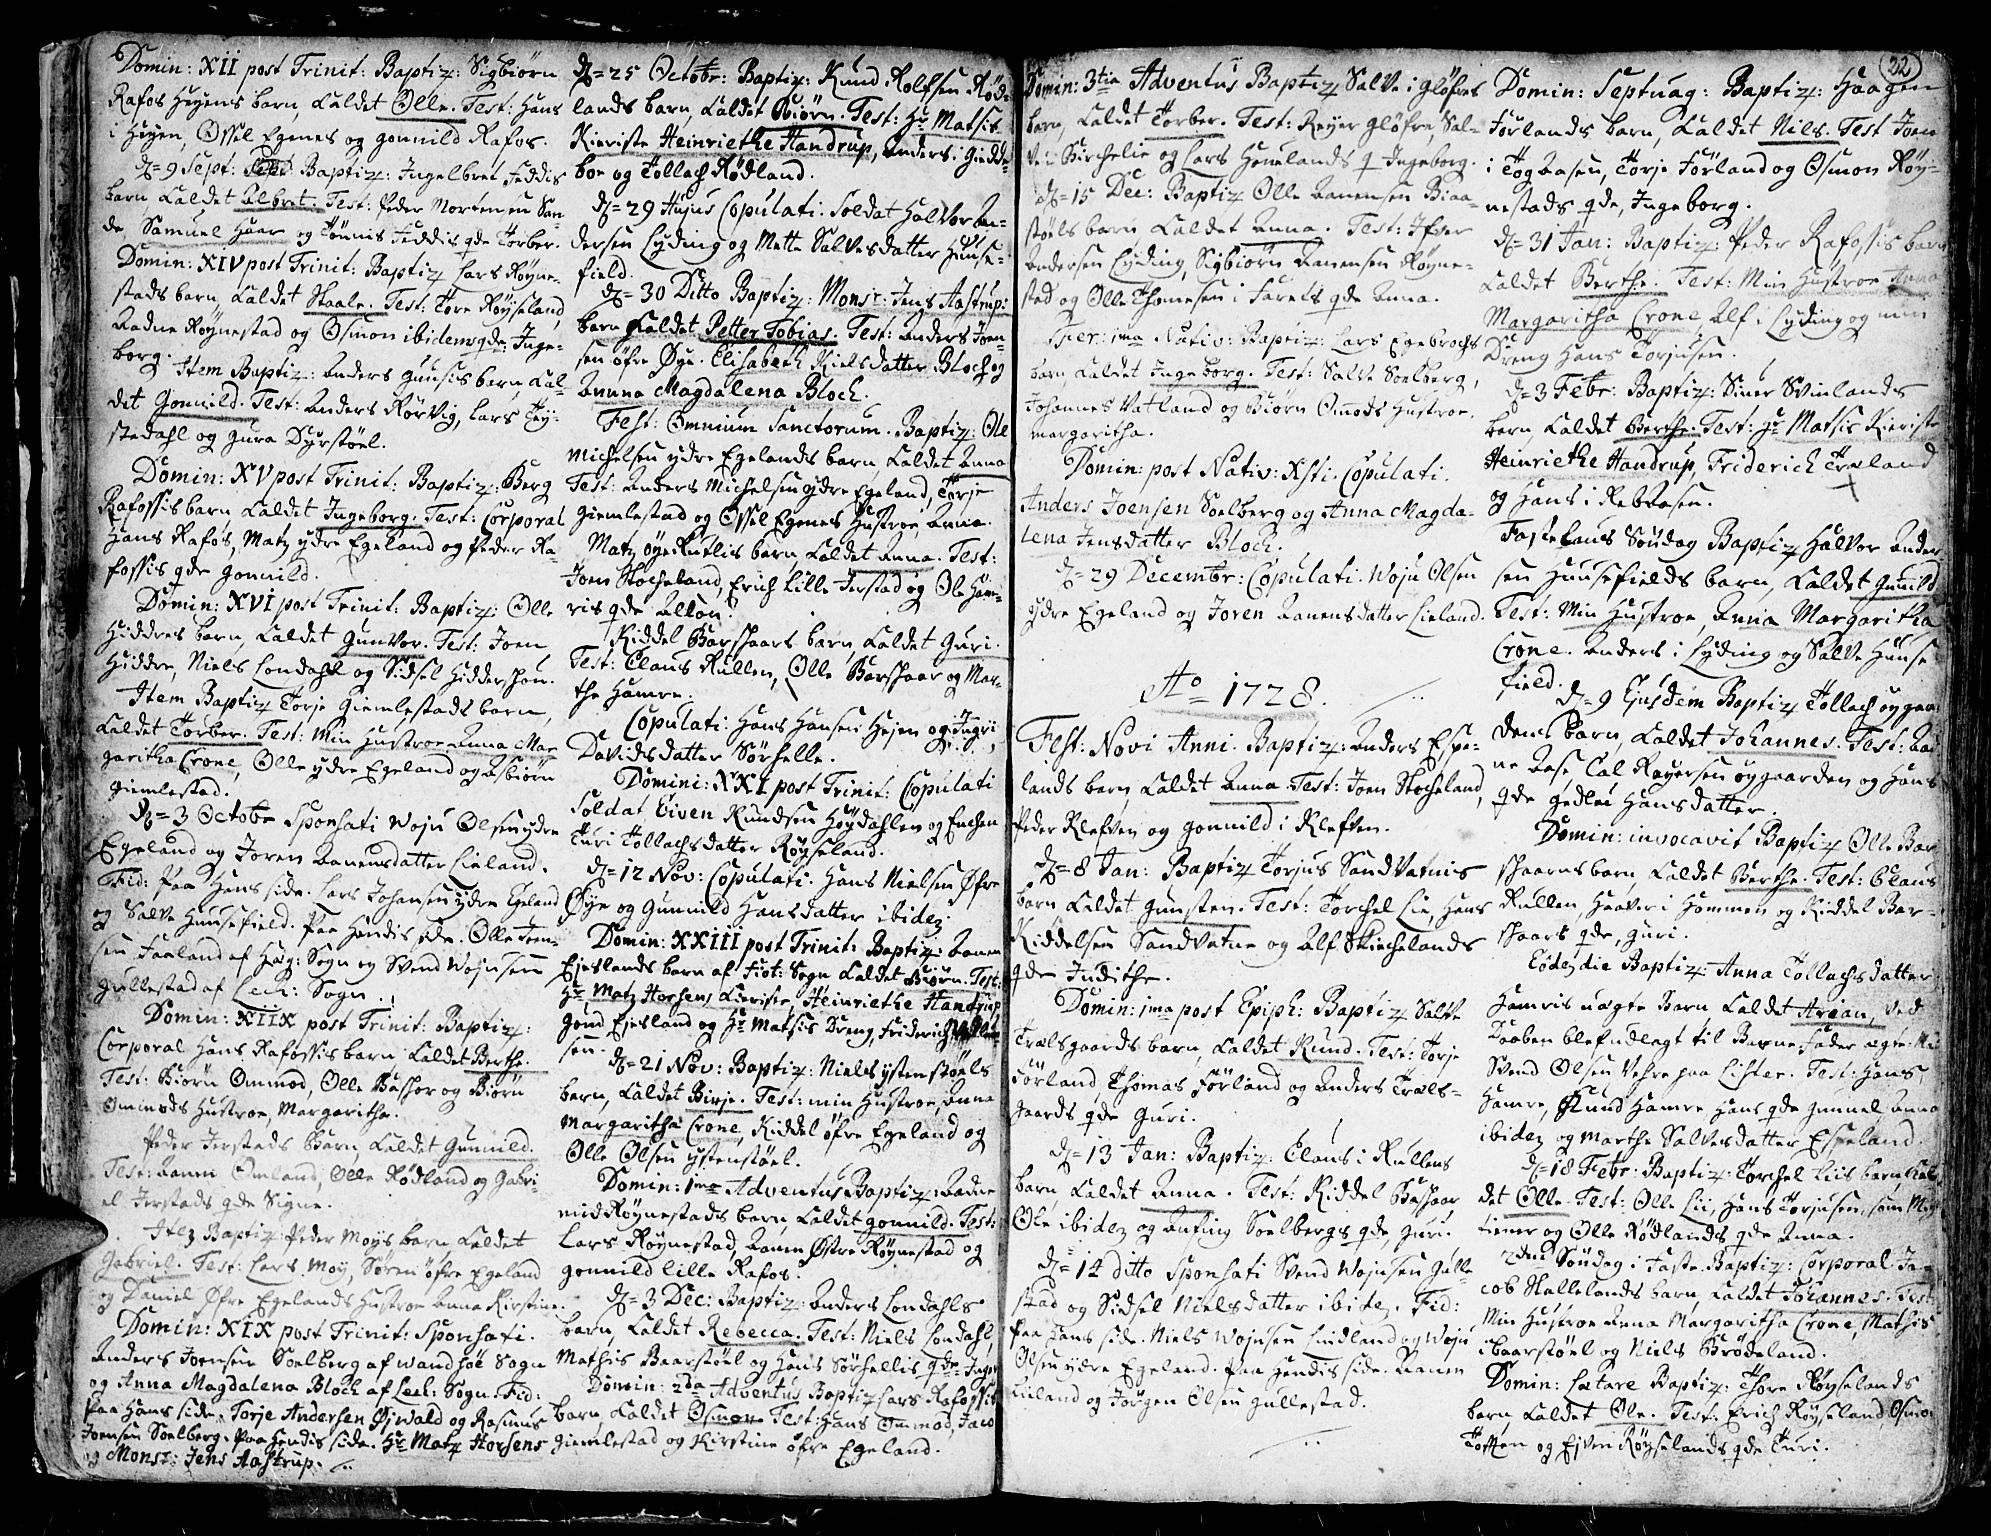 Domin: XII post Trinit: Baptiz: Sigbiørn
Rafos Heyens barn, Caldet Olle. Test: Hans
i Heyen, Ossel Egenes og gonnild Rafos.
D= 9 Sept: Baptiz: Ingelbret Feddis
barn Caldet Albret. Test: Peder Mortensen San-
de, Samuel Haar og Tønnis Feddis qde Torber.
Domin: XIV post Trinit: Baptiz Lars Røyne-
stads barn, Caldet Staale. Test: Tore Røyseland,
Aadne Røynestad og Osmon ibidem qde Inge-
borg. Item Baptiz: Anders gunsis barn Cal-
det Gonnild. Test: Anders Rørvig, Lars Try-
stedahl og gura Dyrstøel.
Domin: XV post Trinit: Baptiz: Berg
Rafossis barn Caldet Ingeborg. Test: Corporal
Hans Rafos, Matz ydre Egeland og Peder Ra-
fossis qde gonnild.
Domin: XVI post Trinit: Baptiz: Olle
Hiddres barn, Caldet Gunvor. Test: Joen
Hiddre, Niels Londahl og Sidsel Hidderskou.
Item Baptiz Torje Giemlestads barn,
Caldet Torber. Test: Min Hustroe Anna Mar
garitha Crone, Olle ydre Egeland og Asbiørn
giemlestad.
D= 3 Octobr Sponsati Woju Olsen ydre
Egeland og Joren Aanensdatter Lieland.
Fid: Paa Hans side. Lars Johansen ydre Egeland
og Salve Hunsefield. Paa Hendis side. Olle Jem-
sen Faaland af Hæg: Sogn og Svend Wojusen
gullestad af Leck: Sogn.
Domin: XIIX post Trinit: Baptiz:
Corporal Hans Rafossis barn Caldet Berthe.
Test: Biørn Ommod, Olle Basskor og Biørn
Ommods Hustroe, Margaritha.
Peder Jerstads barn, Caldet Gunnild.
Test: Aanen Omland, Olle Rødland og Gabri-
el Jerstads qde Signe.
Baptiz Peder Moys barn, Caldet
Gabriel. Test: Lars Moy, Søren øfre Egeland
og Daniel Øfre Egelands Hustroe Anna Kirstine.
Domin: XIX post Trinit: Sponsati.
Anders Joensen Soelberg af Wandsøe Sogn
og Anna Magdalena Bloch af Leck: Sogn. Fid:
Paa Hans side. Torje Andersen Øjwald og Rasmus
Joensen Soelberg. Paa Hendis side. Hr Matz Horsens
og Monsr: Jens Aastrup.
D= 25 Octobr: Baptiz: Knud Rolfsen Rød-
lands barn, Caldet Biørn. Test: Hr Matsis
Kieriste Heinriethe Handrup, Anders i Giedde-
boe og Tollach Rødland.
D= 29 Hujus Copulati. Soldat Halvor An-
dersen Lyding og Mette Salvesdatter Hunse-
field.
D= 30 Ditto Baptiz: Monsr. Jens Aastrups
barn Caldet Petter Tobias. Test: Anders Joen-
sen øfre Øye. Elisabeth Nielsdatter Bloch og
Anna Magdalena Bloch.
Fest: Omnium Sanctorum. Baptiz: Ole
Michelsen ydre Egelands barn, Caldet Anna
Test: Anders Michelsen ydre Egeland, Torje
Giemlestad og Ossel Egenes Hustroe, Anna.
Matz barn, Caldet Anna. Test:
Joen Stocheland, Erich Lille Jerstad og Ole Ham-
ris qde
Kiddel Barskaars barn, Caldet Guri.
Test: Claus Kullen, Olle Barskaar og Mar-
the Hamre.
Copulati: Hans Hansen Heyen og Ingri
Davidsdatter Sørhelle.
Domini: XXI post Trinit: Copulati
Soldat Eiven Knudsen Høydahlen og Enchen
Turi Tollachsdatter Røyseland.
D= 12 Nov: Copulati. Hans Nielsen Øfre
Øye og Gunnild Hansdatter ibidem.
Domin: XXIII post Trinit: Baptiz: Aanen
Ejeslands barn af Fiot: Sogn Caldet Biørn. Test:
Hr Matz Horsens Kieriste, Heinriethe Handrup
Goud Ejesland og Hr Matsis Dreng, Friderich
sen.
D= 21 Nov: Baptiz: Niels ystenstøels
barn, Caldet Birje. Test: min Hustroe, Anna
Margaritha Crone, Kiddel øfre Egeland og
Olle Olsen ystenstøel.
Domin: 1ma Adventus Baptiz: Aadne
mid Røynestads barn, Caldet gonnild. Test:
Lars Røynestad, Aanen Østre Røynestad og
gonnild lille Rafos.
D= 3 Dec: Baptiz: Anders Londahls
barn, Caldet Rebecca. Test: Niels Londahl,
Mathis Baarstøel og Hans Sørhellis qde
Domin: 2da Adventus Baptiz Lars Rafossis
barn, Caldet Osmon Test: Hans Ommod, Jaco
Giemlestad og Kirstine øfre Egeland.
32
Domin: 3tia Adventus Baptiz Salve i Gløfres
barn, Caldet Torber. Test: Reyer Gløfre, Sal-
ve Birchelie og Lars Homelands q Ingeborg.
D= 15 Dec: Baptiz Olle Aanensen Biaa-
støels barn Caldet Anna. Test: Ifver
Andersen Lyding, Sigbiørn Aanensen Røyne-
stad og Olle Thomesen i Farets qde Anna.
Fer: 1ma Nativ: Baptiz: Lars Egebrochs
barn, Caldet Ingeborg. Test: Salve Soelberg,
Johannes Vatland og Biørn Ommods Hustroe,
margaritha.
Domin: post Nativ: Xsti. Copulati.
Anders Joensen Soelberg og Anna Magda-
lena Jensdatter Bloch.
D= 29 Decembr: Copulati. Woju Olsen
ydre Egeland og Joren Aanensdatter Lieland.
Ao= 1728.
Fest: Novi Anni. Baptiz: Anders Espe-
lands barn, Caldet Anna. Test: Joen Stocheland,
Peder Klefven og gonnild i Klefven.
D= 8 Jan: Baptiz Torjus Sandvatnis
barn Caldet gunsten. Test: Torchel Lie, Hans
Kiddelsen Sandvatne og Alf Birchelands
qde Judithe.
Domin: 1ma post Epiph: Baptiz Salve
Trælsgaards barn, Caldet Knud. Test: Torje
Førland, Thomas Førland og Anders Træls-
gaards qde Guri.
D= 13 Jan: Baptiz: Claus i Kullens
barn, Caldet Anna. Test: Kiddel Basskaar
Ole ibidem og Anfing Soelbergs qde, Guri.
D= 14 ditto Sponsati Svend Wojusen Gulle-
stad og Sidsel Nielsdatter ibidem. Fid:
Paa Hans side. Niels Wojusen Lindland og Woju
Olsen ydre Egeland. Paa Hendis side. Aanen
Lieland og Jørgen Olsen gullestad.
Domin: Septuag: Baptiz: Haagen
Førlands barn, Caldet Nils. Test Joen
i Togaasen, Torje Førland og Osmon Røy-
nestads qde, Ingeborg.
D= 31 Jan: Baptiz: Peder Rafossis barn
Caldet Berthe. Test: Min Hustroe Anna
Margaritha Crone, Alf i Lyding og min
Dreng Hans Torjusen.
D= 3 Febr: Baptiz: Siner Svinlands
barn, Caldet Berthe. Test: Hr Matsis Kieriste
Heinriethe Handrup, Friderich Træland
og Hans i Rebaasen.
Fastelavns Søndag Baptiz Halvor Ander
sen Hunsefields barn, Caldet Gunnild
Test: Min Hustroe, Anna Margaritha
Crone. Anders i Lyding og Salve Hunse
field.
D= 9 Ejusdem Baptiz Tollach øygaar
dens barn, Caldet Johannes. Test: Aa-
ne Aase, Cal Reyersen øygaarden og Hans
qde Hansdatter.
Domin: invocavit Baptiz Olle Bar
skaars barn, Caldet Berthe. Test: Claus
Kullen, Haaver i Hommen og Kiddel Bar-
skaars qde, guri.
Eodem die Baptiz: Anna Tollachsdatter
Hamris uægte Barn Caldet Arian, ved
Daaben blef udlagt til Barne Fader
Svend Olsen Vehre paa Lister. Test: Hans
Hamre, Knud Hamre Hans qde gunnel, Anna
ibidem og marthe Salvesdatter Espeland.
D= 18 Febr: Baptiz: Torchel Liis barn Cal
det Olle. Test: Olle Lii, Hans Torjusen, som
tiener og Olle Rødlands qde Anna.
2den Søndag i Faste. Baptiz: Corporal Ja
cob Hallelands barn, Caldet Johannes. Test:
Min Hustroe Anna Margaritha Crone, Mathis
i baarstøel og Niels Brødeland.
Domin: Lætare Baptiz: Thore Røyselands
barn Caldet Ole. Test: Erich Røyseland, Osmon
Toften og Ejven Røyselands qde Turi.